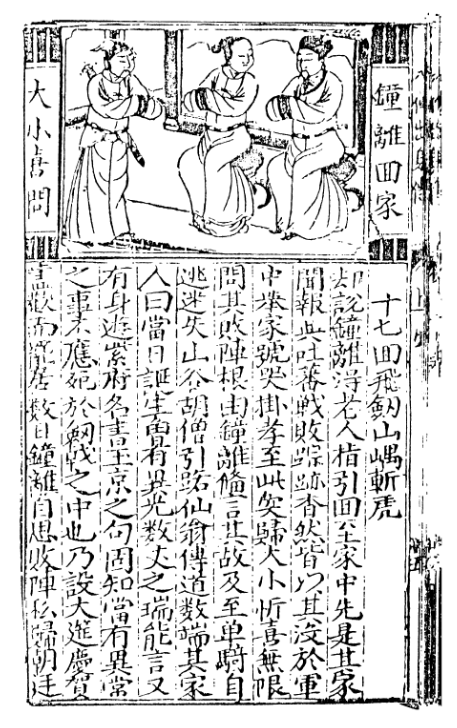 鐘離回家
大小喜問
十七回飛劔山嵎斬虎
却說鐘離得老人指引回至家中先是其家
聞報與吐蕃戰敗踪跡杳然皆以其沒於軍
中舉家號哭掛孝至此突歸大小忻喜無限
問其敗陣根由鐘離備言其故及至单騎自
逃迷失山谷胡僧引路仙翁傳道数端其家
人曰當日誕生旹有異光数丈之瑞能言又
有身遊紫府名書玉京之句固知當有異常
之事不應死於劔戟之中也乃設大筵慶賀
盡歡而罷居数日鐘離自思敗陣私歸朝廷